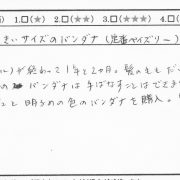 1.□(★) 2.□(★★) 3.□(★★★) 4.□(★
きいサイズのバンダナ(定番ペイズリー)
が終わって1年と2ヵ月。髪の毛もだ
の バンダナは手ばなすことはできず
と明るめの色のバンダナを購入。